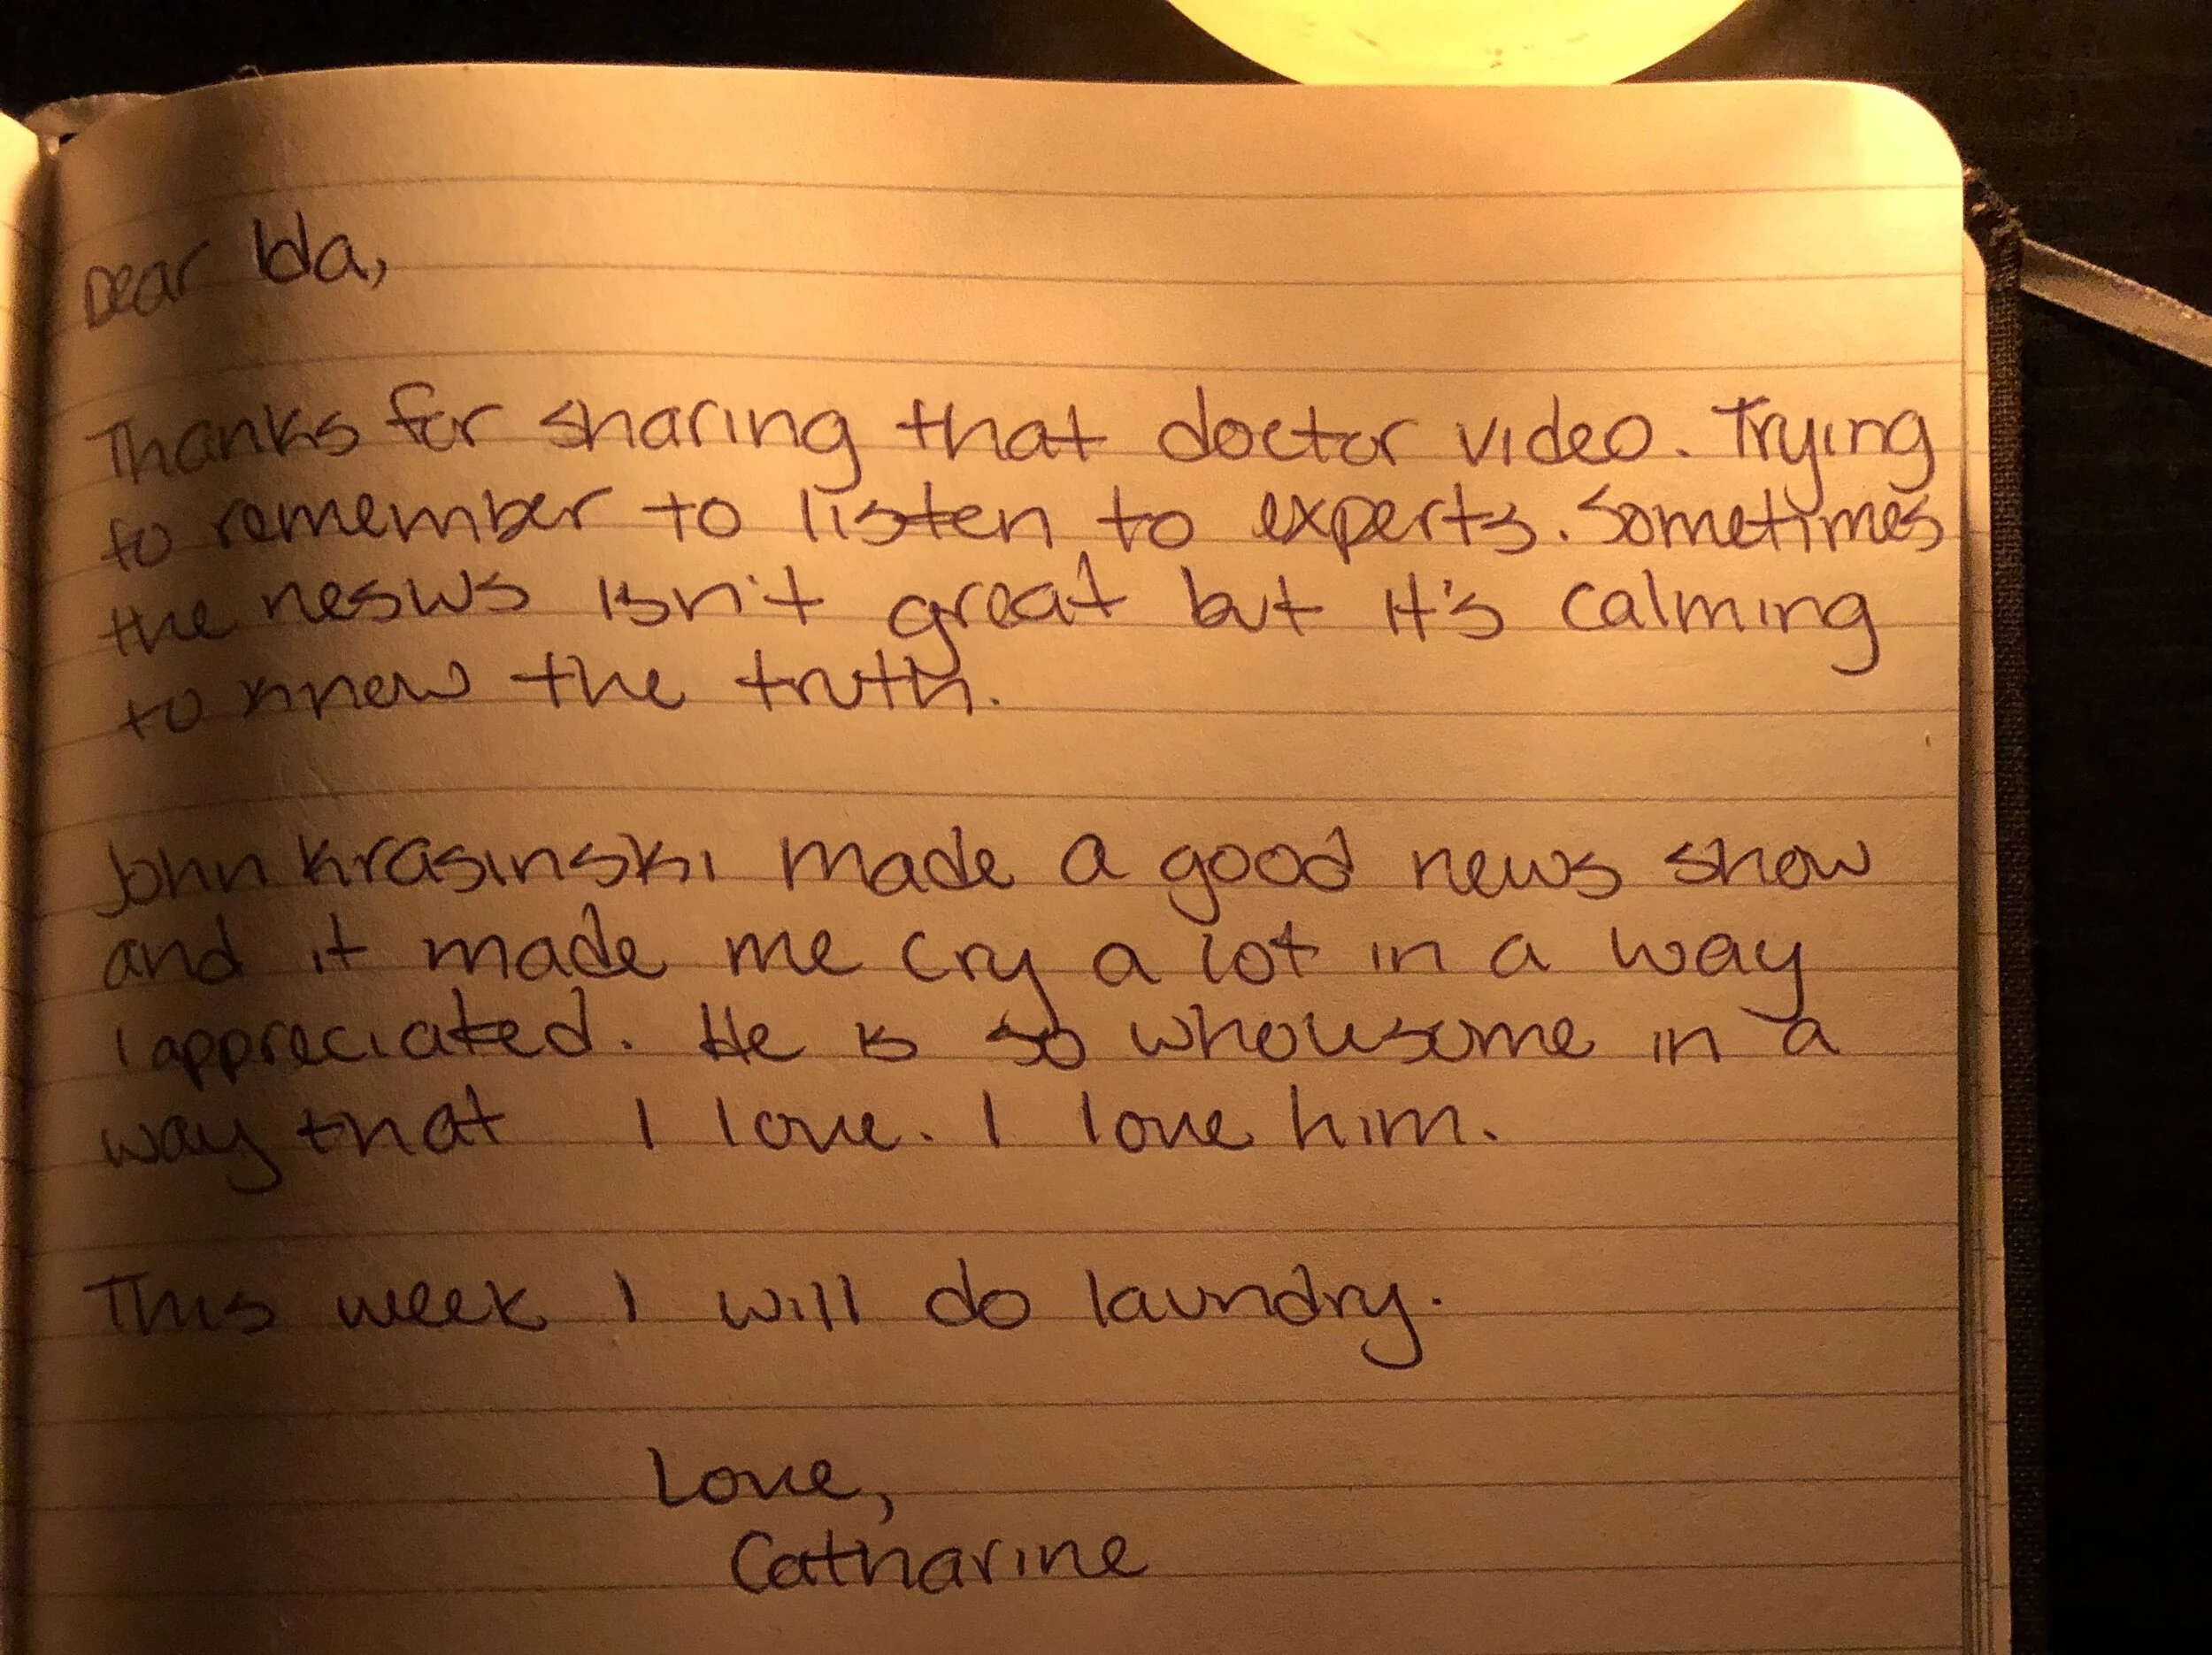 Dear Ida,
Thanks for sharing that doctor video. Trying
to remember to listen to experts. Sometimes
the nesws isn't great but it's calming
to know the truth.
John Krasinski made a good news show
and it made me cry a lot in a way
I appreciated. He is so wholesome in a
way that I love. I love him.
This week I will do laundry.
Love,
Catharine